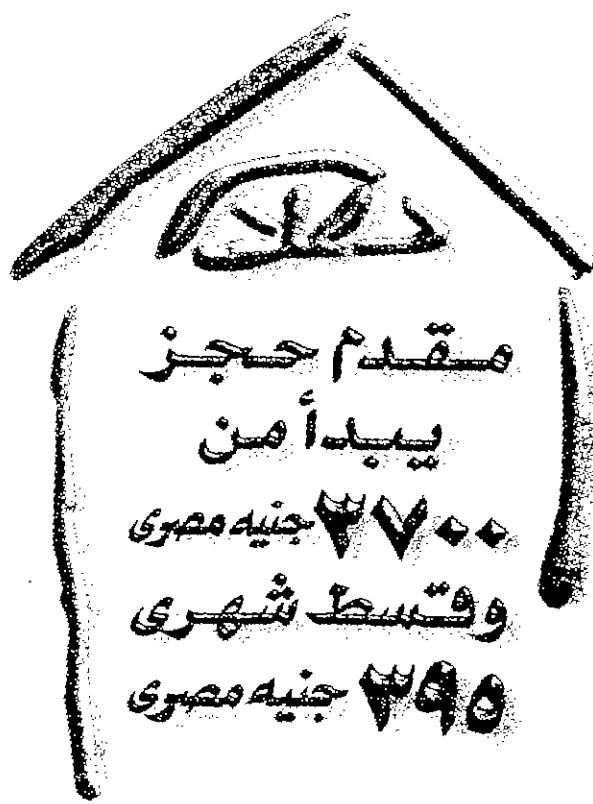 مقدم حجز
يبدأ من
٣٧٠٠ جنيه مصرى
وقسط شهرى
٣٩٥ جنيه مصرى